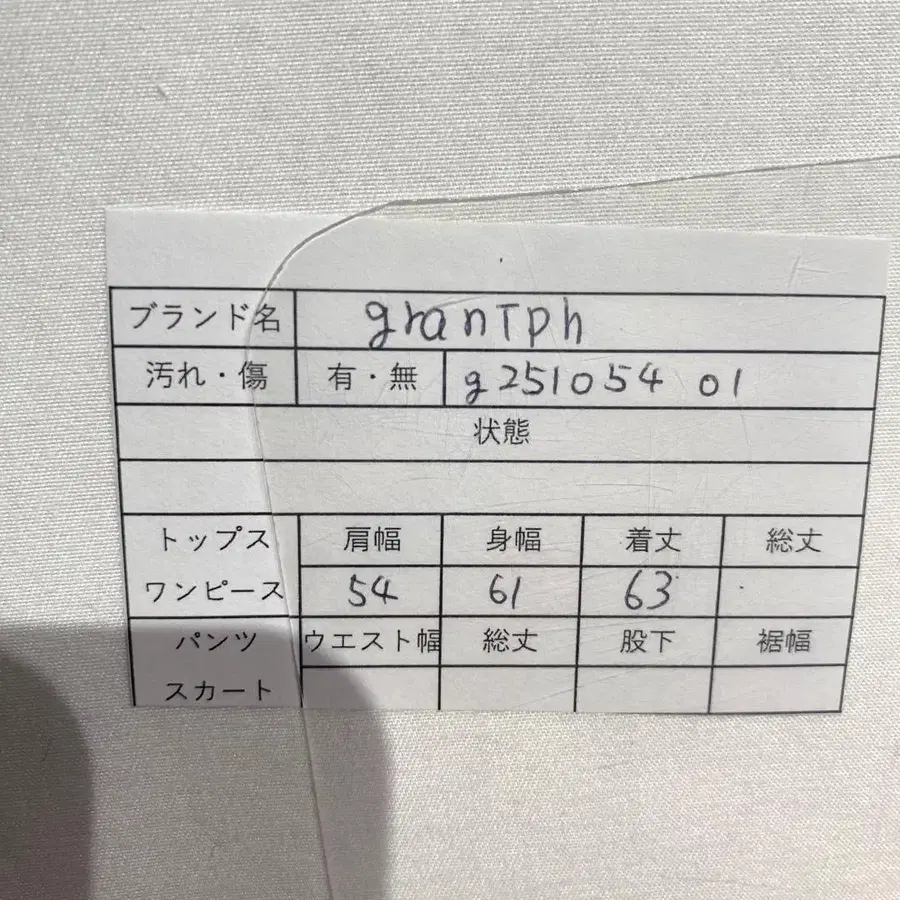 ブランド名 granTph
汚れ・傷 有・無 g251054 01
状態
トップス 肩幅 身幅 着丈 総丈
ワンピース 54 61 63
パンツ ウエスト幅 総丈 股下 裾幅
スカート